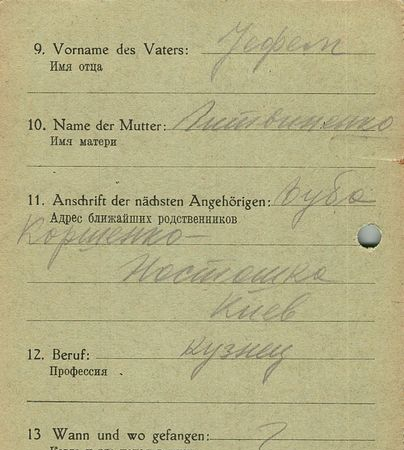 9. Vorname des Vaters:
Имя отца
10. Name der Mutter: Литвиненко
Имя матери
11. Anschrift der nächsten Angehörigen: Луба
Адрес ближайших родственников
Коршенко-
Киев
12. Beruf: кузнец
Профессия
13 Wann und wo gefangen: ?